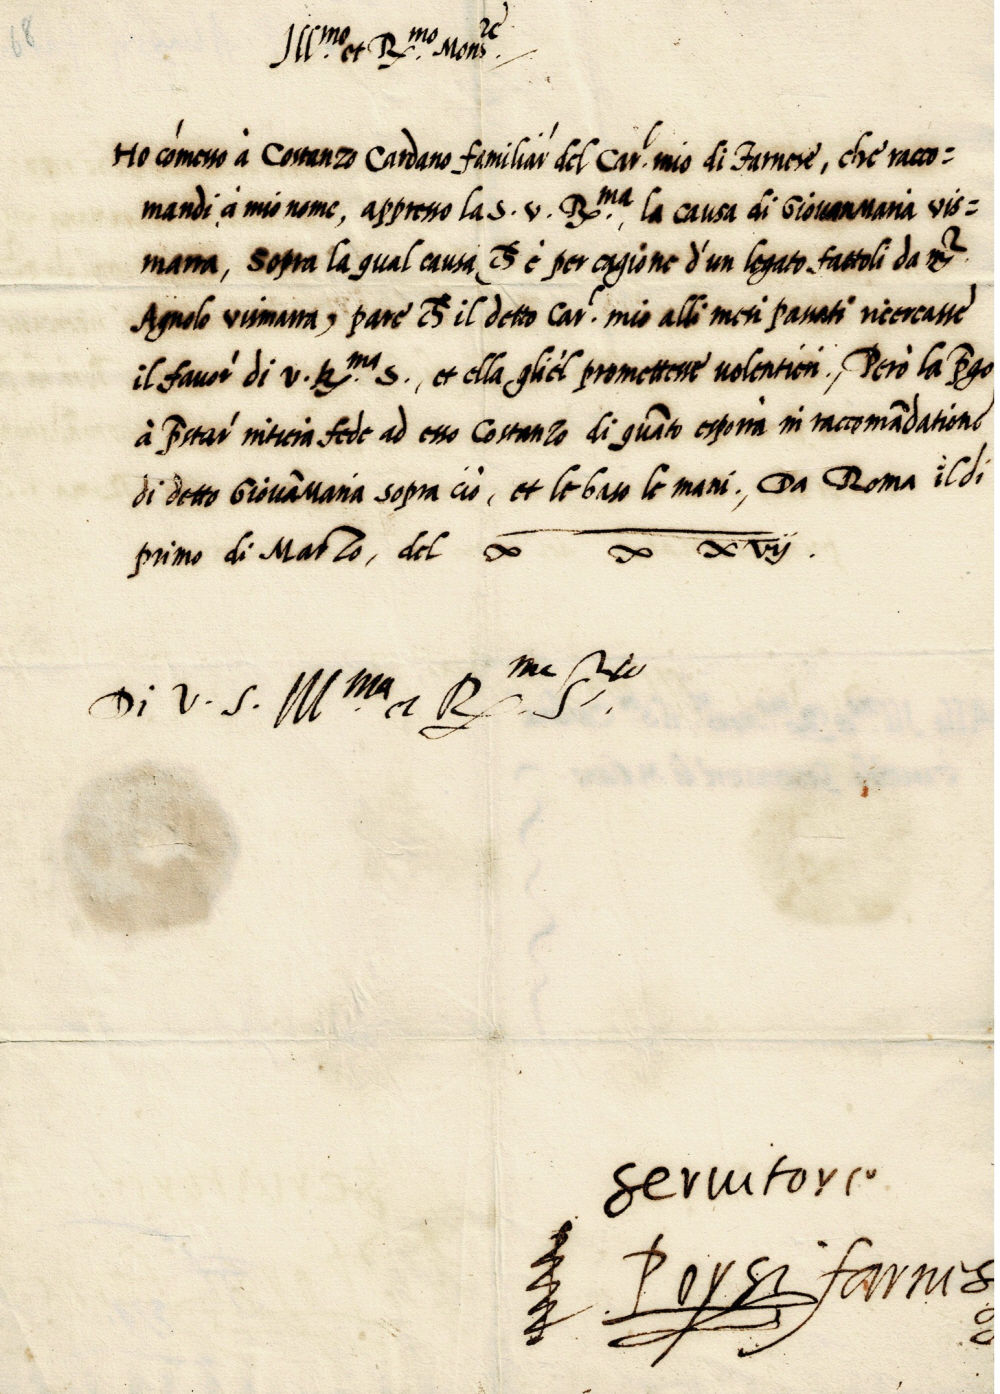 68
Ill.mo et R.mo Mons.re
Ho cómesso à Costanzo Cardano familiár del Car.l mio di Farnese, che racco=
mandi à mio nome, appresso la S. V. R.ma, la causa di GiovanMaria Vis=
marra, Sopra la qual causa, ch̃ è per cagione d'un legato fattoli da
Agnolo Vismarra, pare ch̃ il detto Car.l mio alli mesi passati ricercasse
il favor di V. R.ma S., et ella gliél promettesse volentieri., Però la p̃go
à p̃star' fede ad esso Costanzo di quãto esporrà in raccomãdatione
di detto GiovãMaria sopra ciò, et le baso le mani., Da Roma il di
primo di Marzo, del
Di V. S. Ill.ma et R.ma S.re
servitore
farnes